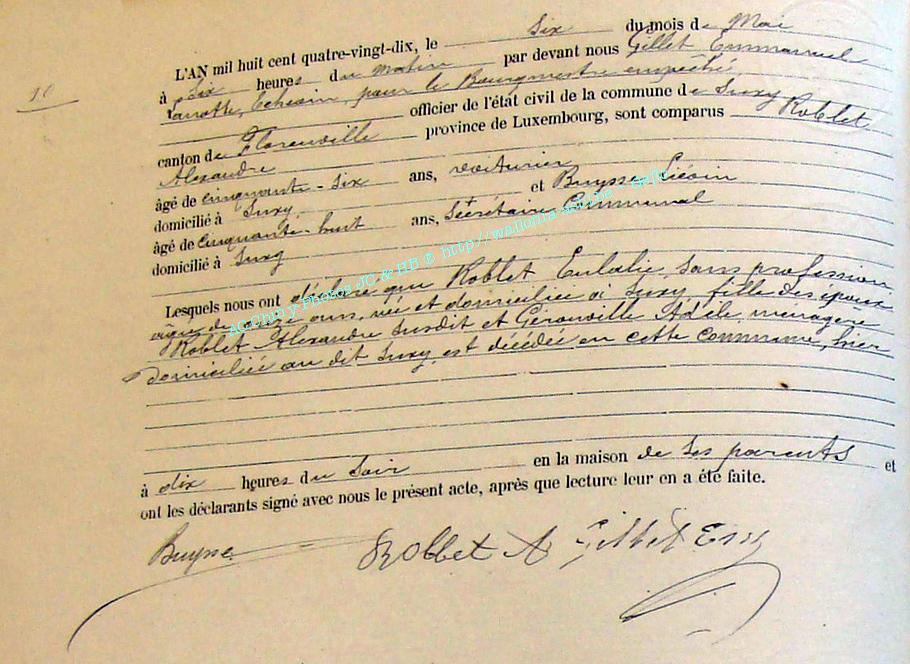 L'AN mil huit cent quatre-vingt-dix, le six du mois de Mai
à dix heures du matin par devant nous Gillet Emmanuel
Echevin, pour le Bourgmestre empêché,
10
officier de l'état civil de la commune de Suxy
canton de Florenville province de Luxembourg, sont comparus Roblet
Alexandre
âgé de cinquante-six ans, voiturier
domicilié à Suxy, et Buysse Liévin
âgé de cinquante-huit ans, Secrétaire Communal
domicilié à Suxy
Lesquels nous ont déclaré que Roblet Eulalie, sans profession
âgée de ans, née et domiciliée à Suxy, fille des époux
Roblet Alexandre susdit et Gérouville Adèle ménagère
domiciliée au dit Suxy, est décédée en cette commune, hier
à dix heures du soir en la maison de ses parents et
ont les déclarants signé avec nous le présent acte, après que lecture leur en a été faite.
Buysse Roblet A Gillet Em
Photos JC & RB © http://wallonia